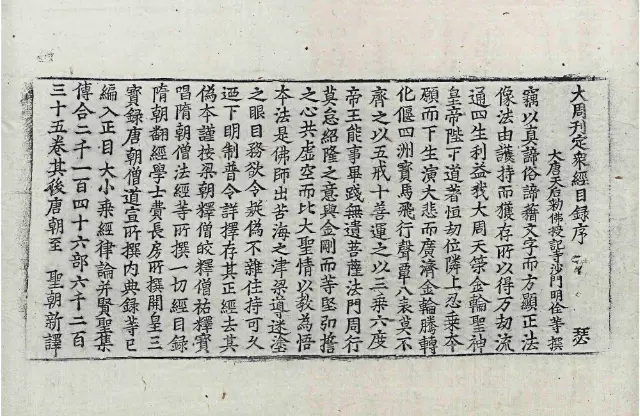 大周刊定衆經目録序
大唐天后勅佛授記寺沙門明佺等撰 瑟
竊以真諦俗諦藉文字而方顯正法
像法由護持而獲存所以得万劫流
通四生利益我大周天策金輪聖神
皇帝陛下道著恒劫位隣上忍乘本
願而下生演大悲而廣濟金輪騰轉
化偃四洲寳馬飛行聲覃八表莫不
齊之以五戒十善運之以三乘六度
帝王能事畢踐無遺菩薩法門周行
莫怠紹隆之意與金剛而等堅擔
之心共虛空而比大聖情以教爲悟
本法是佛師出苦海之津梁導迷塗
之眼目務欲令疑偽不雜住持可久
迺下明制普令詳擇存其正經去其
偽本謹按梁朝釋僧皎釋僧祐釋寳
唱隋朝僧法經等所撰一切經目録
隋朝翻經學士費長房所撰開皇三
寳録唐朝僧道宣所撰内典録等已
編入正目大小乘經律論并賢聖集
傳合二千一百四十六部六千二百
三十五卷其後唐朝至 聖朝新譯